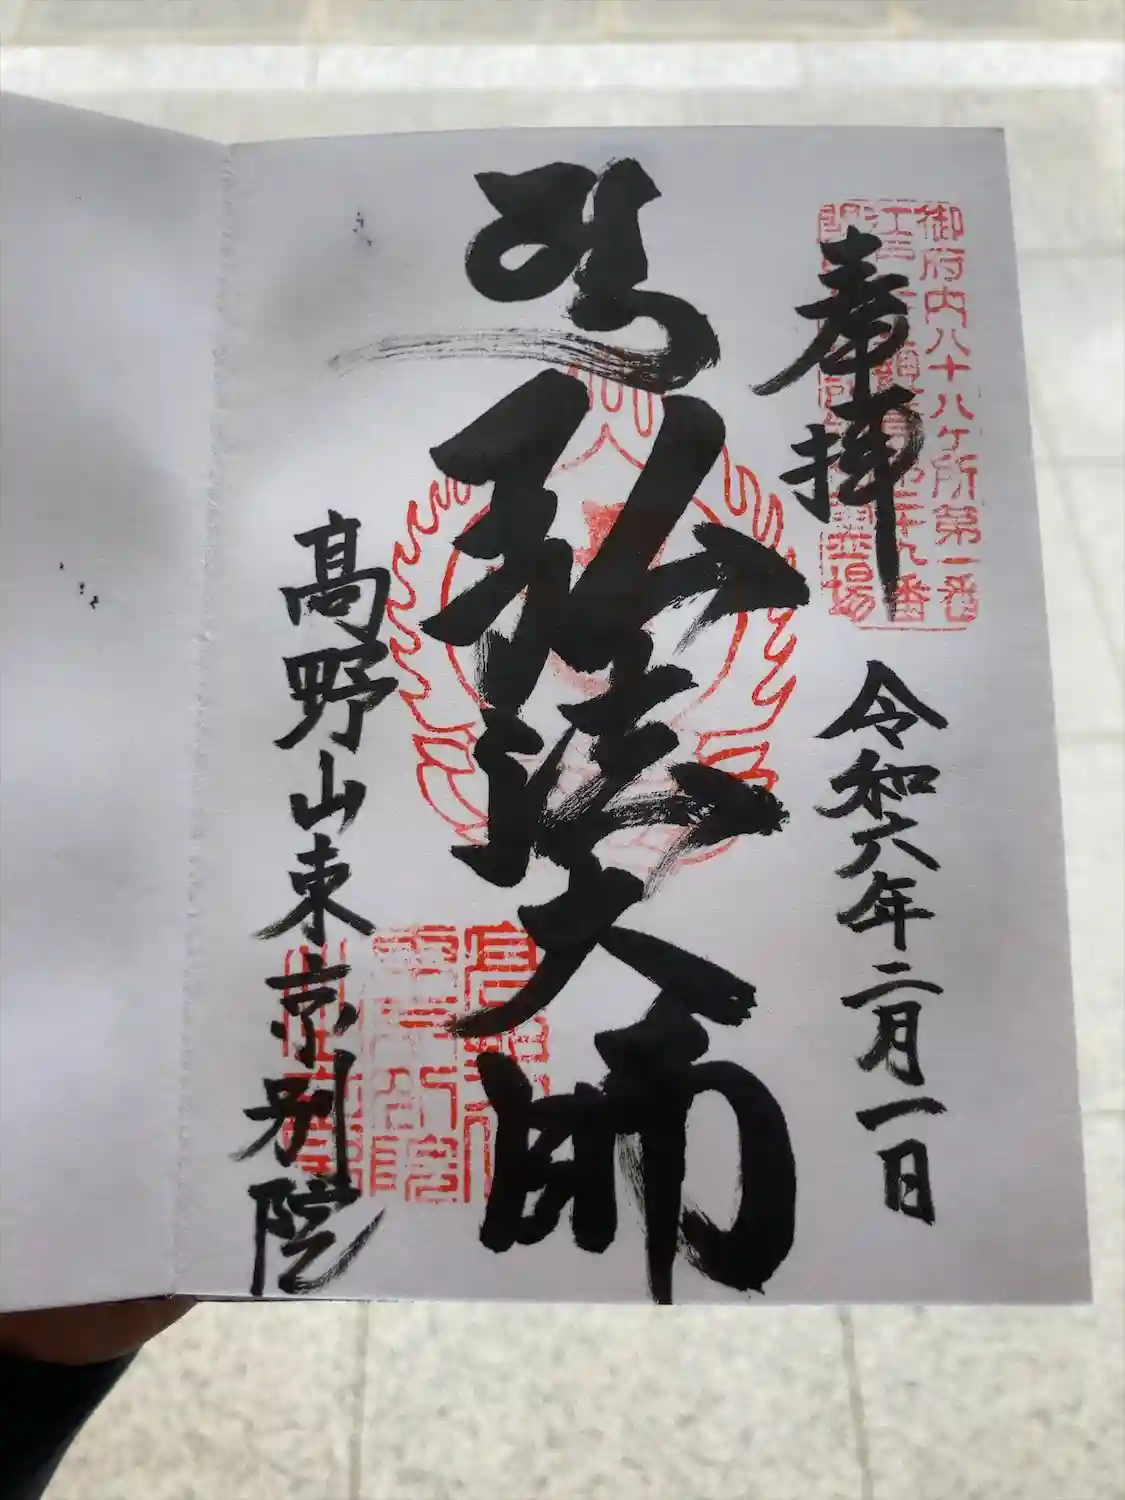 御府内八十八ヶ所第一番
奉拝
令和六年二月一日
弘法大師
高野山東京別院